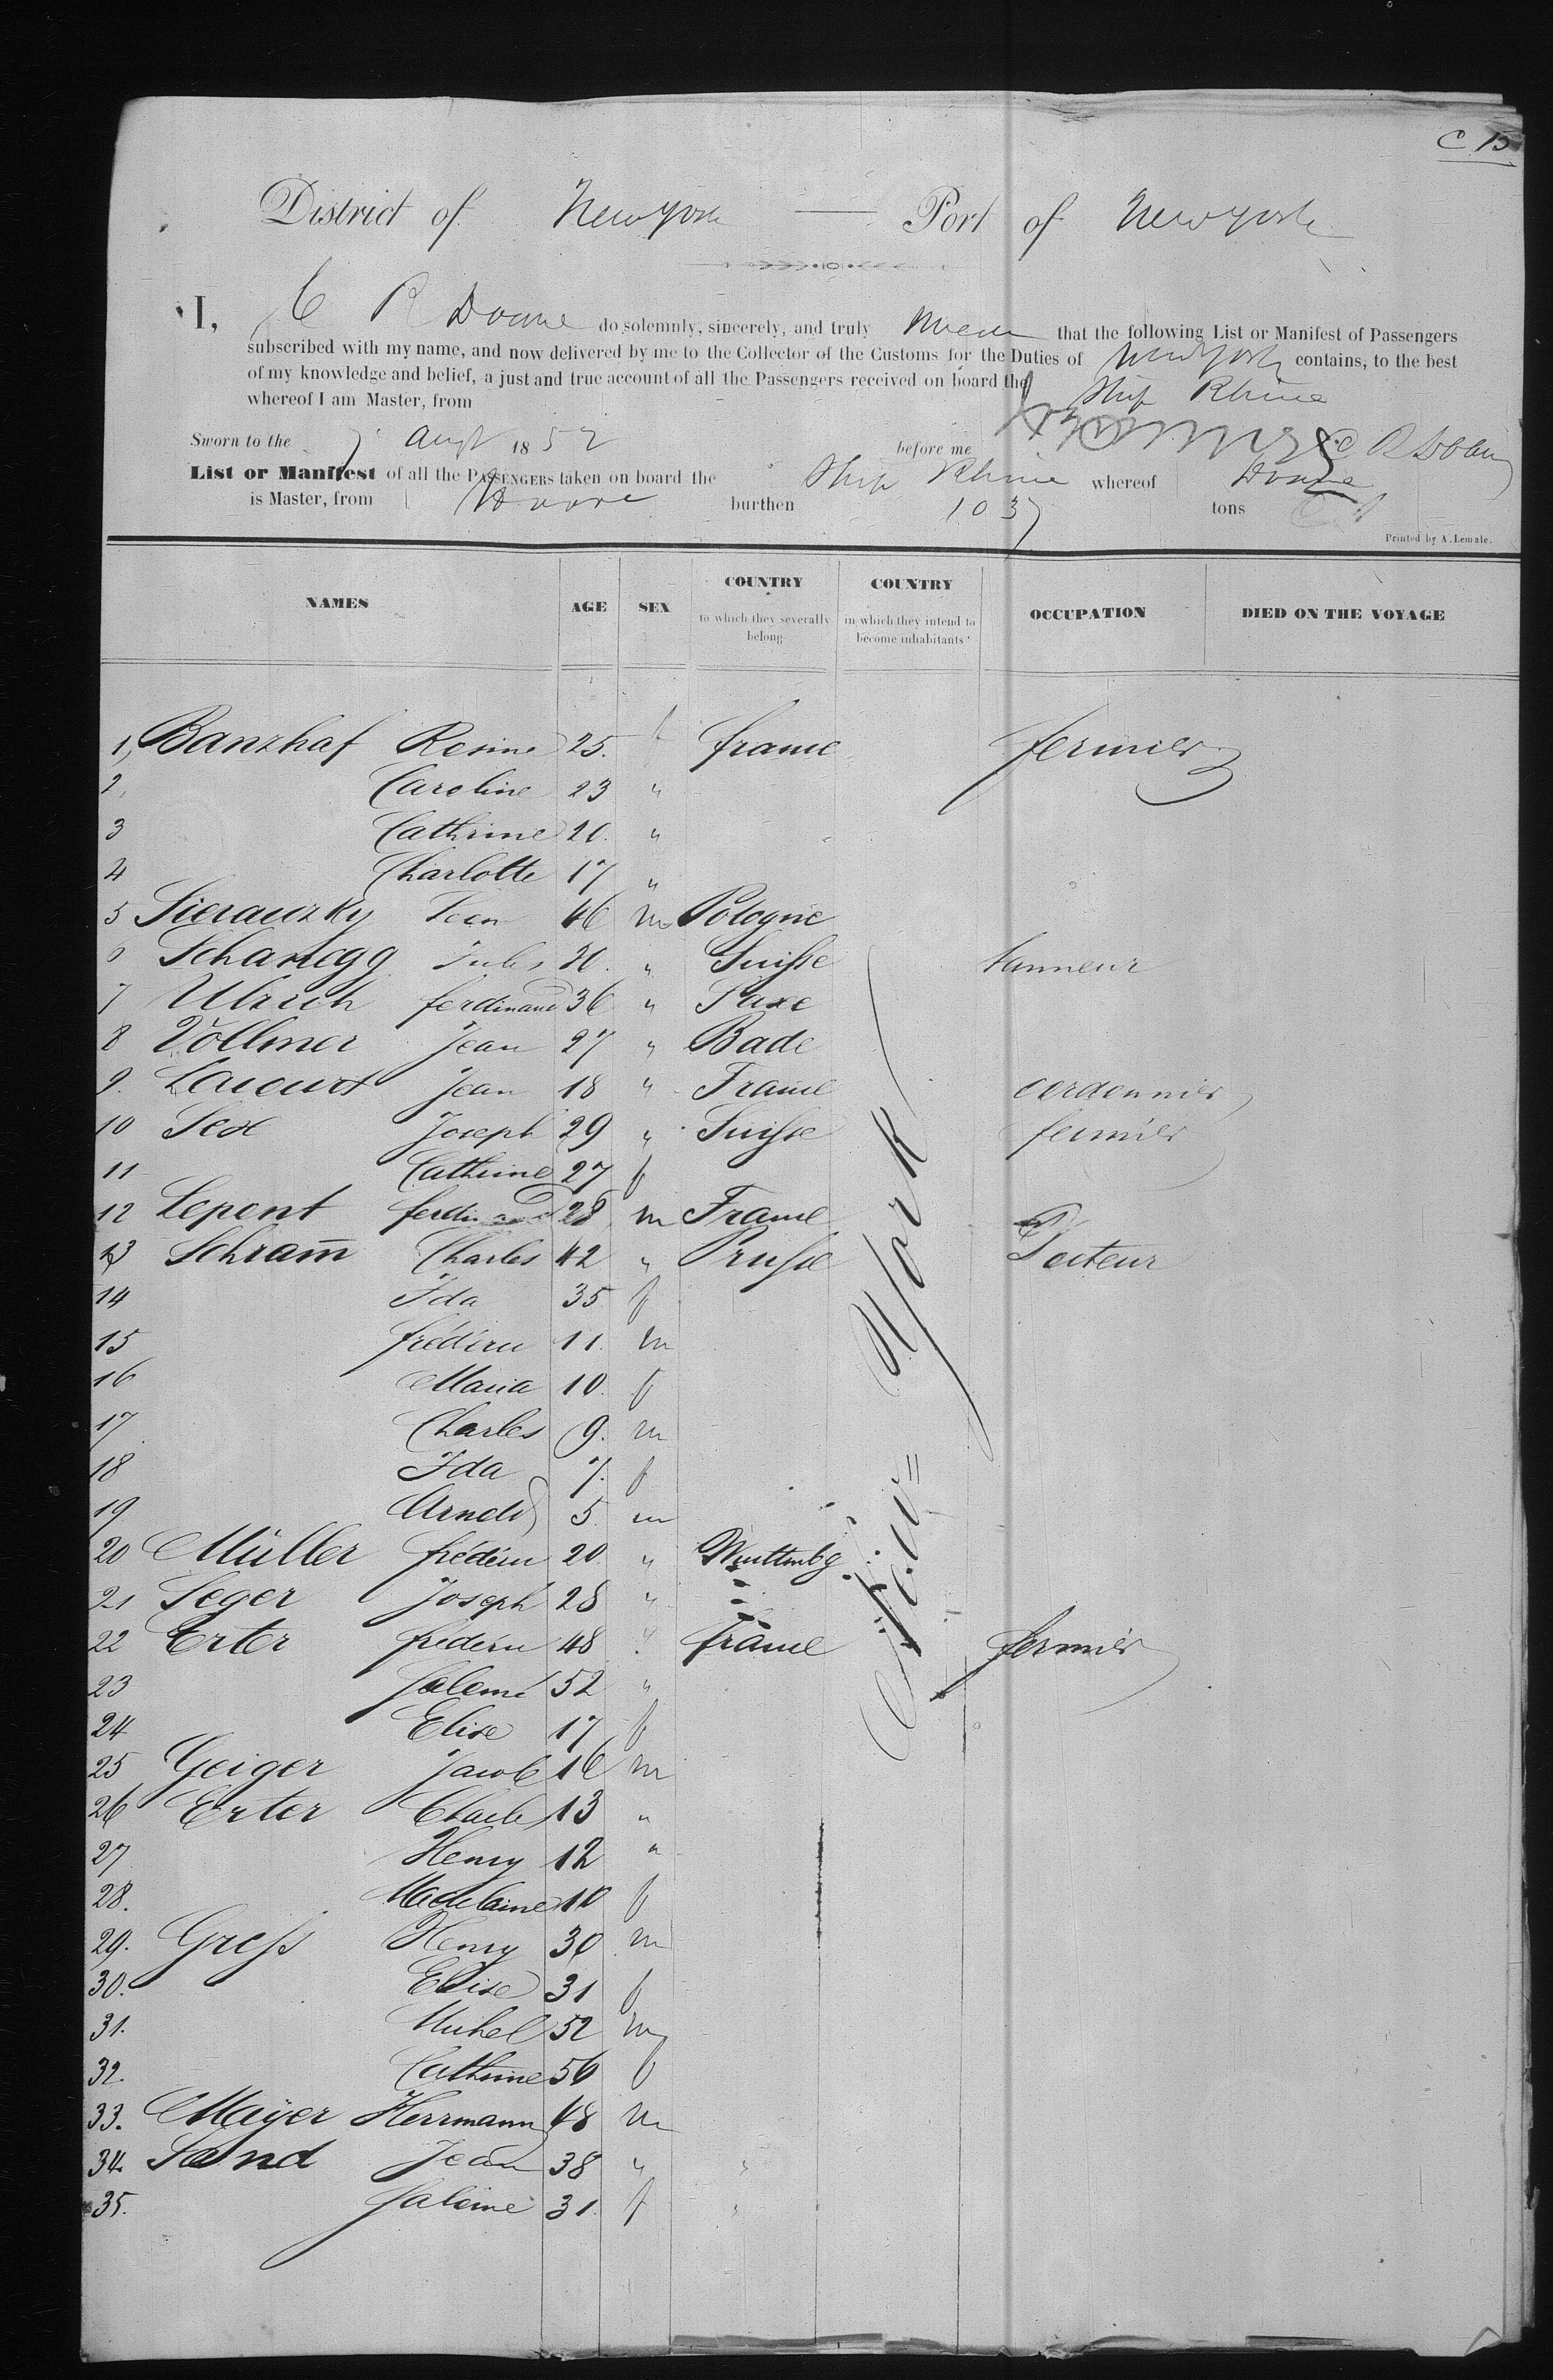 C 15
District of New york — Port of New york
I, C R Doane do solemnly, sincerely, and truly swear that the following List or Manifest of Passengers
subscribed with my name, and now delivered by me to the Collector of the Customs for the Duties of New York contains, to the best
of my knowledge and belief, a just and true account of all the Passengers received on board the Ship Rhine
whereof I am Master, from
Sworn to the 7 Augt 1852 before me C R Doane
List or Manifest of all the PASSENGERS taken on board the Ship Rhine whereof Doane
is Master, from Havre burthen 1037 tons
Printed by A. Lemale.
NAMES AGE SEX COUNTRY to which they severally belong COUNTRY in which they intend to become inhabitants OCCUPATION DIED ON THE VOYAGE
1, Banzhaf Rosine 25. f france fermier
2, Caroline 23 "
3 Cathrine 20. "
4 Charlotte 17 "
5 Sierauzky Leon 46 m Pologne
6 Schanegg Jules 20. " Suisse tanneur
7 Ulrich ferdinand 36 " Saxe
8 Vollmer Jean 27 " Bade
9. Jean 18 " France cordonnier
10 Sex Joseph 29 " Suisse fermier
11 Cathrine 27 f
12 Lepont ferdinand 28 m France
13 Schram̄ Charles 42 " Prusse Docteur
14 Ida 35 f
15 fréderic 11. m
16 Maria 10. f
17 Charles 9. m
18 Ida 7. f
19 Arnold 5 m
20 Müller fréderic 20 " Wurttmbg
21 Seger Joseph 28 " "
22 Erter fréderic 48 " france fermier
23 Salomé 52 "
24 Elise 17 f
25 Geiger Jacob 16 m
26 Erter Charles 13 "
27 Henry 12 "
28. Madelaine 10 f
29. Gress Henry 30 m
30. Elise 31 f
31. Michel 52 m
32. Cathrine 56 f
33. Mayer Herrmann 48 m
34. Sand Jean 38 " "
35. Salomé 31. f "
New York